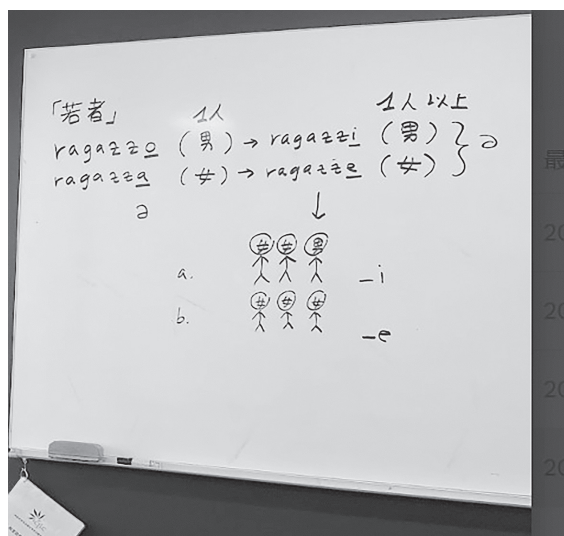 「若者」 1人 1人以上
ragazzo (男) → ragazzi (男) } ə
ragazza (女) → ragazze (女)
ə ↓
女 女 男
a. _i
女 女 女
b. _e
最
20
20
20
20